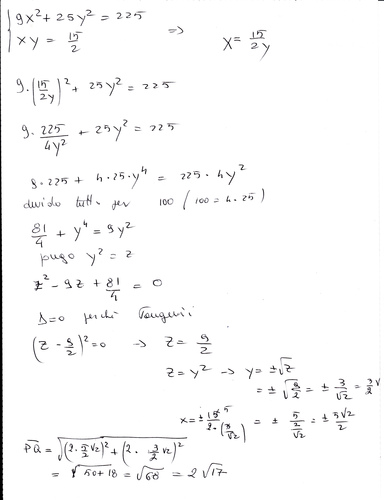 9x² + 25y² = 225
xy = 15/2 => x = 15/2y
9·(15/2y)² + 25y² = 225
9· 225/4y² + 25y² = 225
9·225 + 4·25·y⁴ = 225·4y²
divido tutto per 100 (100 = 4·25)
81/4 + y⁴ = 9y²
pongo y² = z
z² - 9z + 81/4 = 0
Δ=0 perché tangenti
(z - 9/2)² = 0 → z = 9/2
z = y² → y = ±√z
= ± √9/2 = ± 3/√2 = 3/2 √
x = ± 15 5/2·(3/√2) = ± 5/2/√2 = ± 5√2/2
PQ = √(2·5/2 √2)² + (2· 3/2 √2)²
= √50+18 = √68 = 2√17